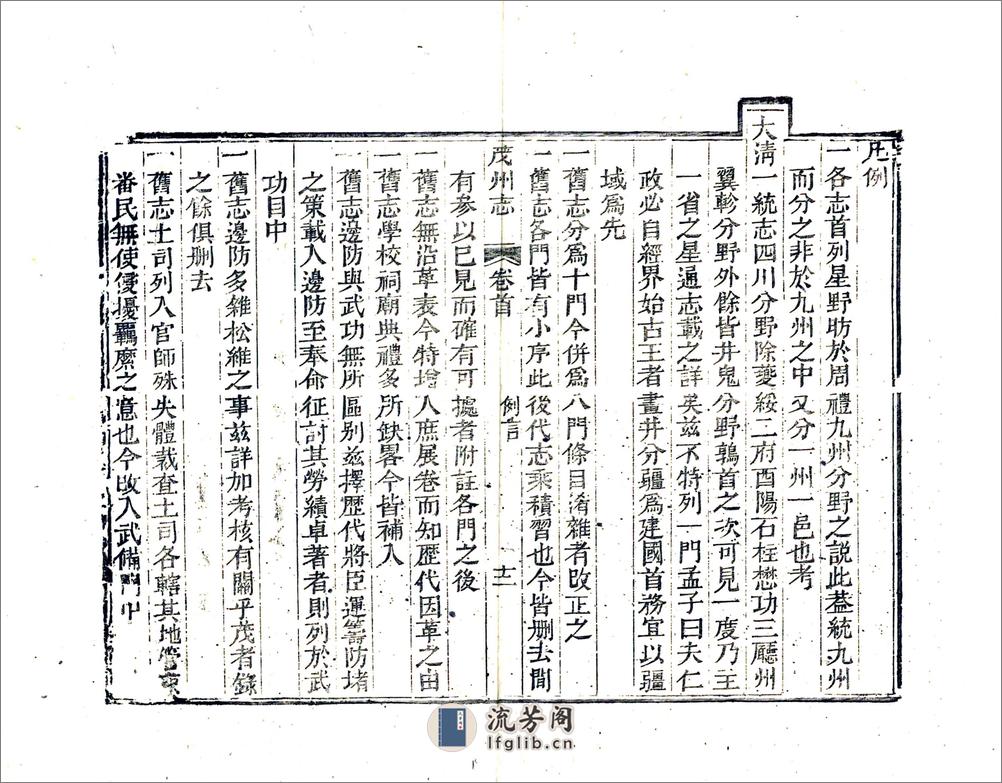 凡例
一各志首列星野昉於周禮九州分野之說此蓋統九州
而分之非於九州之中又分一州一邑也考
大淸一統志四川分野除夔綏二府酉陽石柱懋功三廳州
翼軫分野外餘皆井鬼分野鶉首之次可見一度乃主
一省之星通志載之詳矣兹不特列一門孟子曰夫仁
政必自經界始古王者畫井分疆爲建國首務宜以疆
域爲先
一舊志分爲十門今併爲八門條目淆雜者改正之
一舊志各門皆有小序此後代志乘積習也今皆删去間
茂州志 卷首 例言 十一
有參以已見而確有可據者附註各門之後
一舊志無沿革表今特增人庶展卷而知歷代因革之由
一舊志學校祠廟典禮多所缺畧今皆補入
一舊志邊防與武功無所區别兹擇歷代將臣運籌防堵
之策載入邊防至奉命征討其勞績卓著者則列於武
功目中
一舊志邊防多雜松維之事兹詳加考核有關乎茂者錄
之餘俱删去
一舊志土司列入官師殊失體裁查土司各轄其地管束
番民無使侵擾羈縻之意也今改入武備門中
流芳阁
lfglib.cn